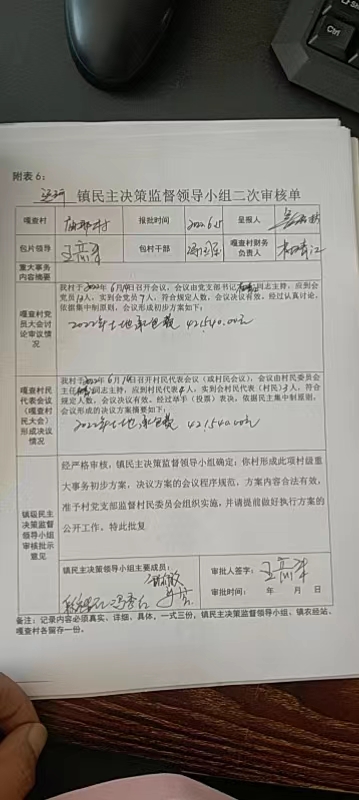 Ctrl
附表 6:
镇民主决策监督领导小组二次审核单
嘎查村 村 报批时间 2022.6.25 呈报人
包片领导 包村干部 嘎查村财务负责人
重大事务内容摘要
嘎查村党员大会讨论审议情况
我村于2022年 6月 日召开会议,会议由党支部书记 同志主持,应到会
党员 人,实到会党员 7人,符合规定人数,会议决议有效。经过认真讨论,
依据集中制原则,会议形成初步方案如下:
2022年土地承包费 421540.00元
嘎查村村民代表会议(嘎查村民大会)形成决议情况
我村于2022年 6月 日召开村民代表会议(或村民会议),会议由村民委员会
主任 同志主持,应到村民代表 人,实到会村民代表(村民)3人,符合
规定人数,会议决议有效。经过举手(投票)表决,依据民主集中制原则,
会议形成的决议方案摘要如下:
2022年土地承包费 421540.00元
镇级民主决策监督领导小组审核批示意见
经严格审核,镇民主决策监督领导小组确定:你村形成此项村级重
大事务初步方案,决议方案的会议程序规范,方案内容合法有效,
准予村党支部监督村民委员会组织实施,并请提前做好执行方案的
公开工作。特此批复
镇民主决策领导小组主要成员: 审批人签字:
审批时间: 年 月 日
备注:记录内容必须真实、详细、具体,一式三份,镇民主决策监督领导小组、镇农经站、
嘎查村各留存一份。